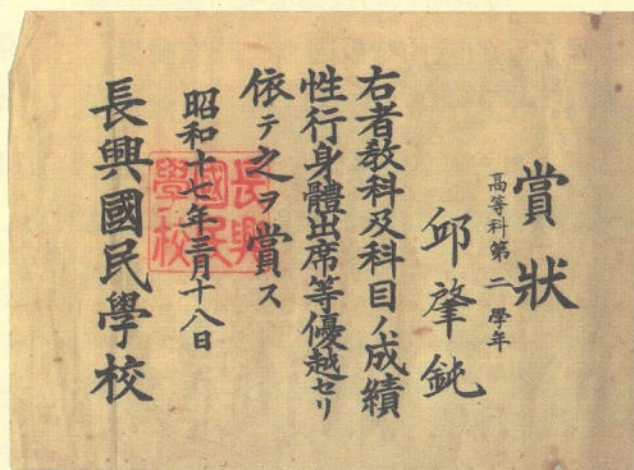 賞狀
高等科第二學年
邱肇鈍
右者教科及科目ノ成績
性行身體出席等優越セリ
依テ之ヲ賞ス
昭和十七年三月十八日
長興國民學校
長興
國民
學校